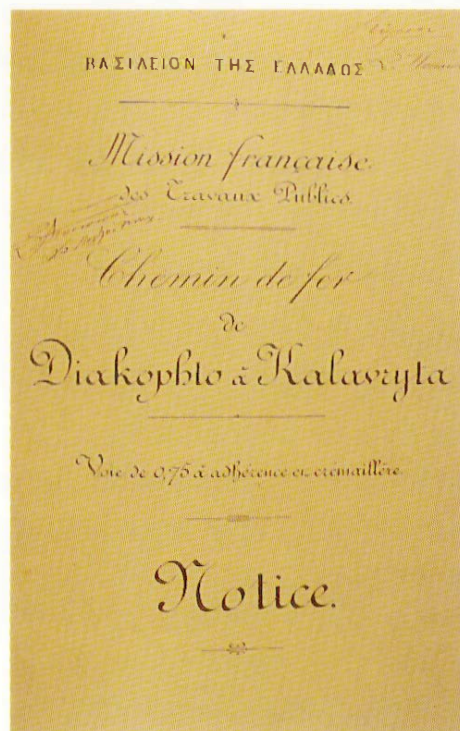 ΒΑΣΙΛΕΙΟΝ ΤΗΣ ΕΛΛΑΔΟΣ
Mission française
des Travaux Publics.
Chemin de fer
de
Diakophto à Kalavryta
Voie de 0,75 à adhérence et crémaillère.
Notice.